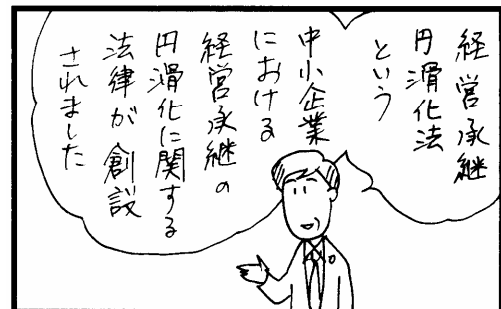 経営承継
円滑化法
という
中小企業
における
経営承継の
円滑化に関する
法律が創設
されました